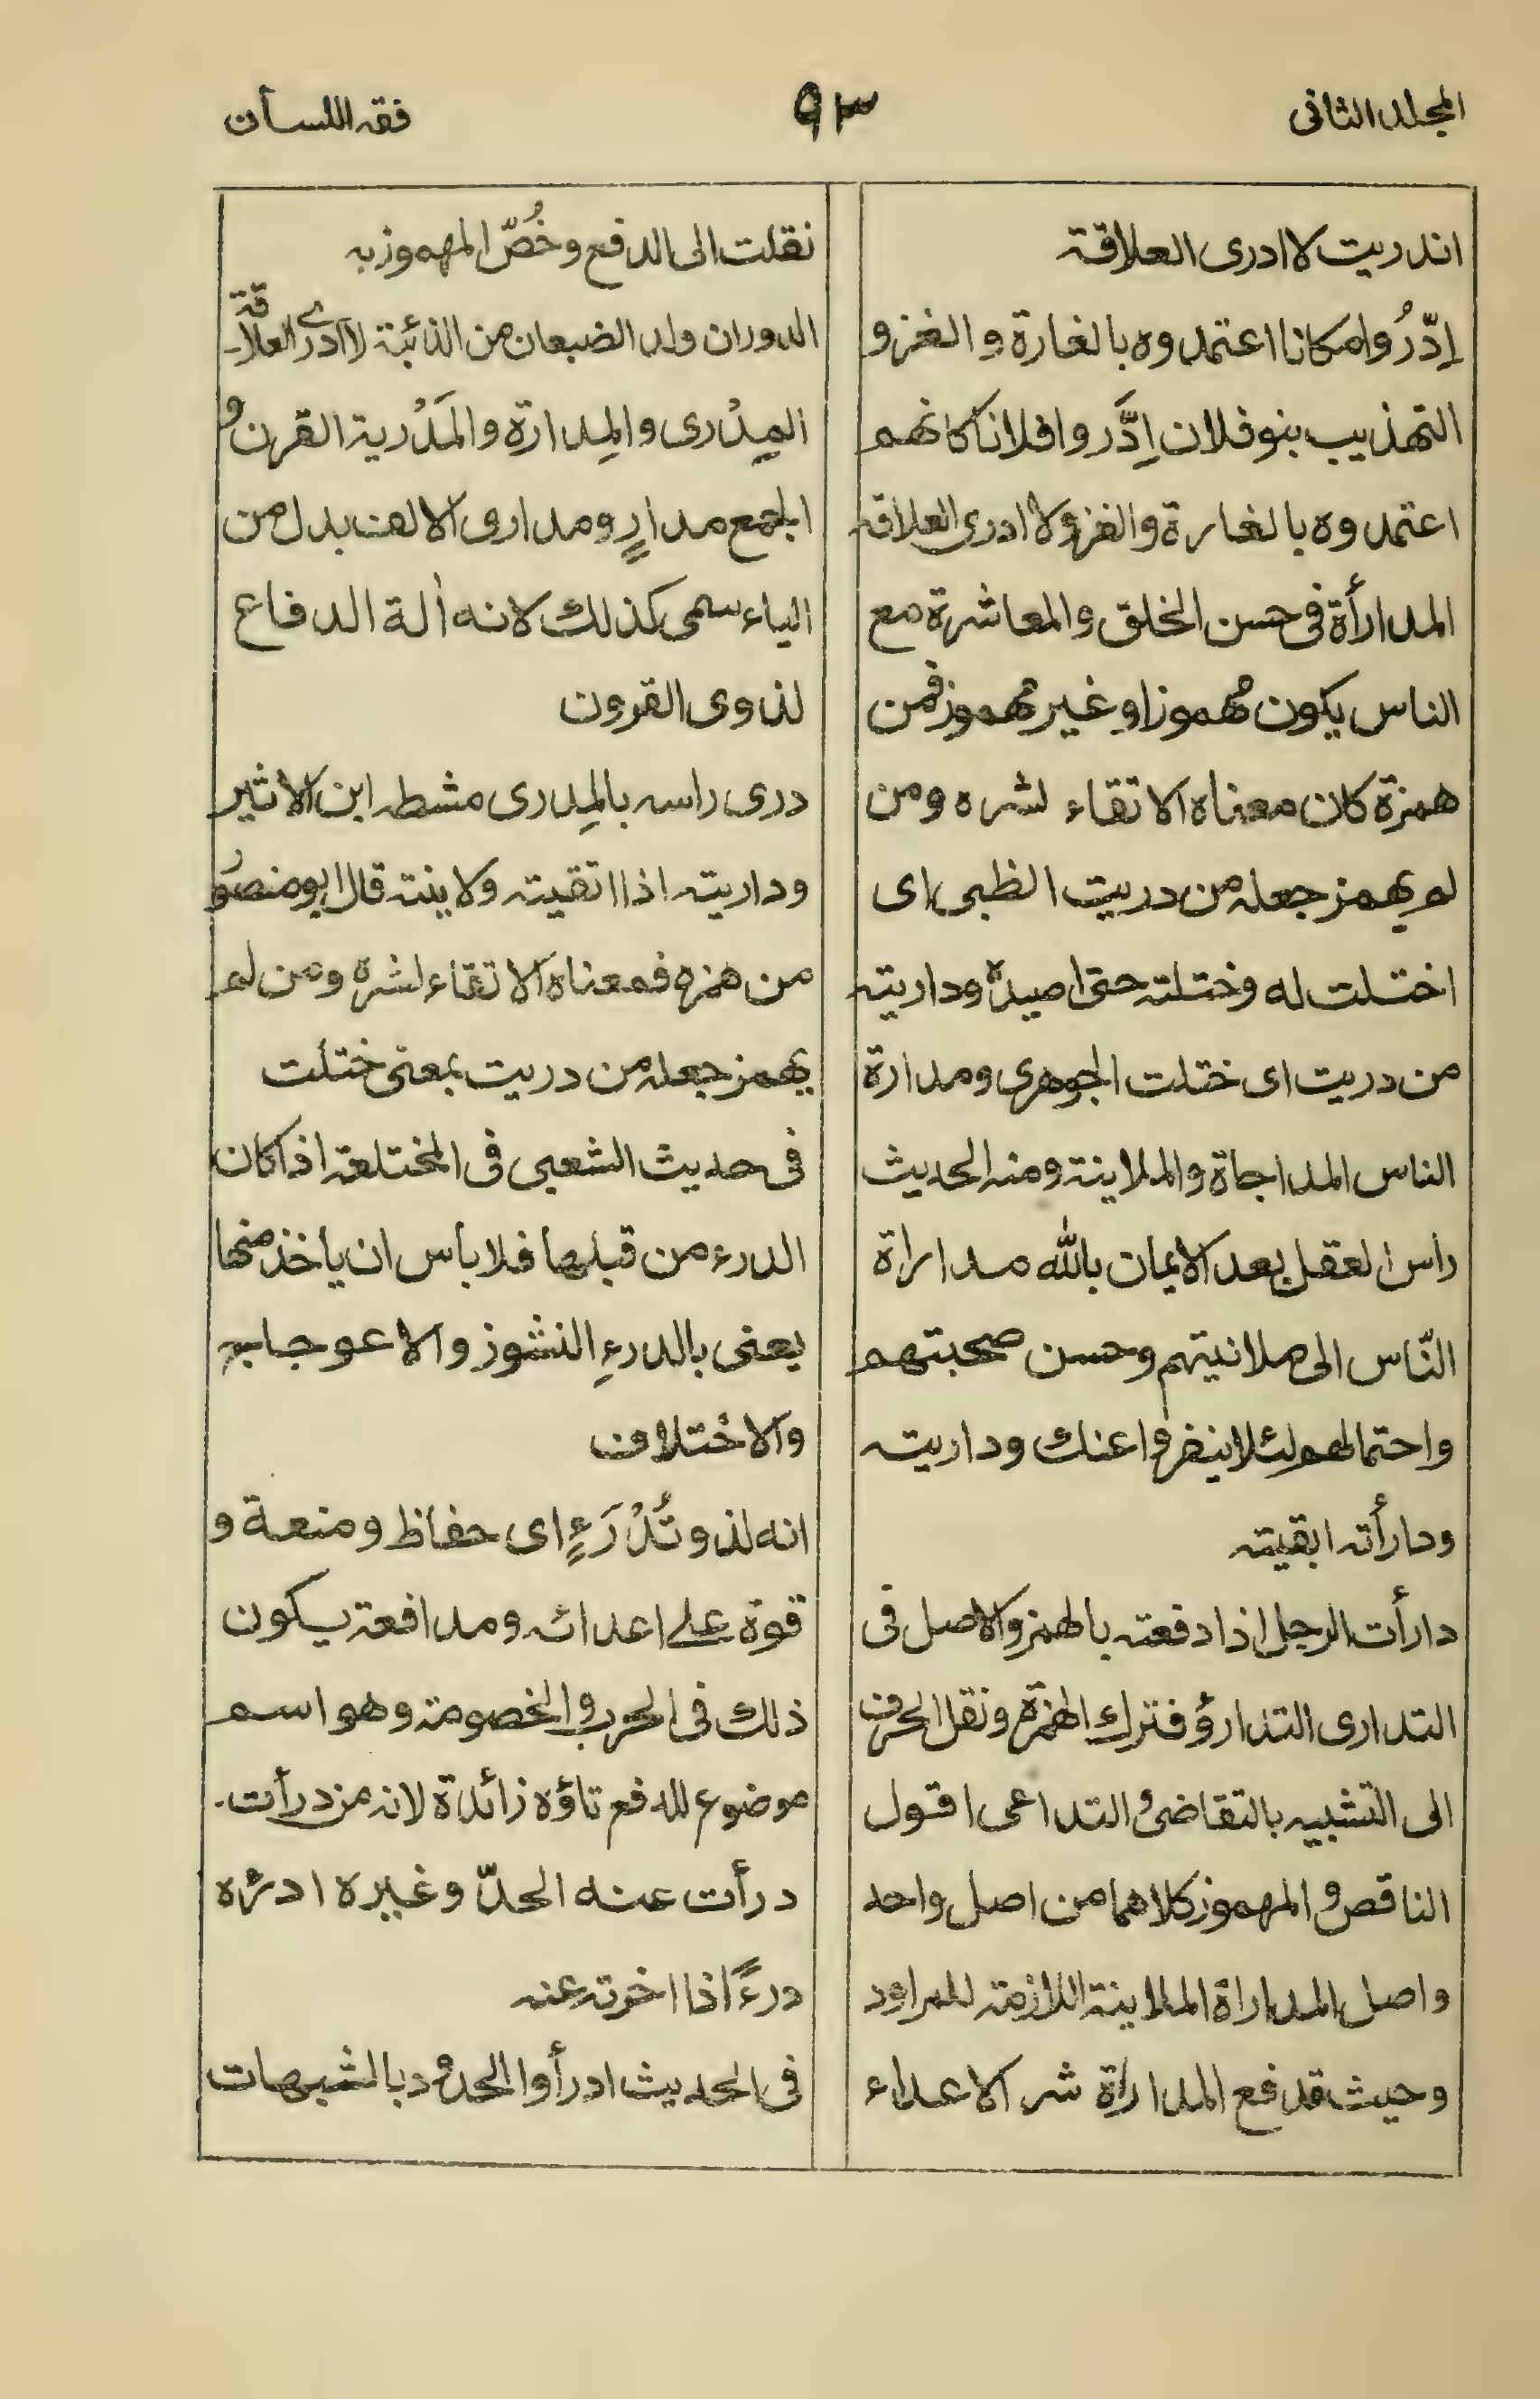 المجلد الثانى
٩٣
فقه اللسان
اندريت لا ادرى العلاقة
اِدّرُوا مكانا اعتمدوه بالغارة والغزو
التهذيب بنو فلان اِدَّروا فلانا كانهم
اعتمدوه بالغارة والغزو لا ادرى العلاقة
المدارأة فى حسن الخلق والمعاشرة مع
الناس يكون مهموزا وغير مهموز فمن
همزة كان معناه الاتقاء لشره ومن
لم يهمز جعله من دريت الظبى اى
اختلت له وختلته حتى اصيده وداريته
من دريت اى ختلت الجوهرى ومدارة
الناس المداجاة والملاينة ومنه الحديث
راس العقل بعد الايمان بالله مداراة
النّاس الى ملانيتهم وحسن صحبتهم
واحتمالهم لئلا ينفروا عنك وداريته
ودارأته ابقيته
دارأت الرجل اذا دفعته بالهمز والاصل فى
التدارى التدارؤ فترك الهمزة ونقل الحرف
الى التشبيه بالتقاضى والتداعى اقول
الناقص والمهموز كلاهما من اصل واحد
واصل المداراة الملاينة اللازمة للمراود
وحيث قد فع المداراة شر الاعداء
نقلت الى الدفع وخُصّ المهموز به
الدوران ولد الضبعان من الذئبة لا ادرى العلاقة
المِدْرى والمِدارة والمَدْرية القرن و
الجمع مدارٍ ومدارى الالف بدل من
الياء سمى كذلك لانه ألة الدفاع
لذوى القرون
درى راسه بالمِدرى مشطه ابن الاثير
وداريته اذا اتقيته ولاينته قال ابو منصور
من همزه فمعناه الاتقاء لشره ومن لم
يهمز جعله من دريت بمعنى ختلت
فى حديث الشعبى فى المختلعة اذا كان
الدرء من قبلها فلا باس ان ياخذ منها
يعنى بالدرءِ النشوز والاعوجاج
والاختلاف
انه لذو تُدْرَءٍ اى حفاظ ومنعة و
قوة على اعدائه ومدافعة يكون
ذلك فى الحرب والخصومة وهو اسم
موضوع للدفع تاؤه زائدة لانه من درأت.
درأت عنه الحدّ وغيره ادرؤه
درءًا اذا اخرته عنه
فى الحديث ادرأوا الحدود بالشبهات